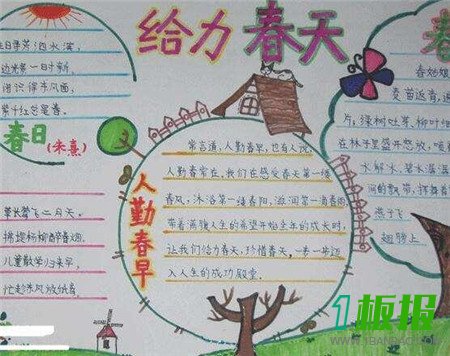 给力春天
春
日寻芳泗水滨,
边光景一时新,
识得东风面,
紫千红总是春。
春日(朱熹)
草长莺飞二月天,
拂堤杨柳醉春烟,
儿童散学归来早,
忙趁东风放纸鸢。
人勤春早
常言道,人勤春早,也有人说
人勤春常在,我们在感受春天第一缕
春风,沐浴第一缕春阳,滋润第一滴春雨
带着满腹人生的希望开始全年的成长时,
让我们给力春天,珍惜春天,一步一步迈
入人生的成功殿堂。
春姑娘
麦苗返青,
片;绿树吐芽,柳叶细
在林子里盛开怒放,喷
水解冰,碧水
的飘带,挥舞着
燕子飞
翅膀上
1板报
WWW.1BANBAO.COM